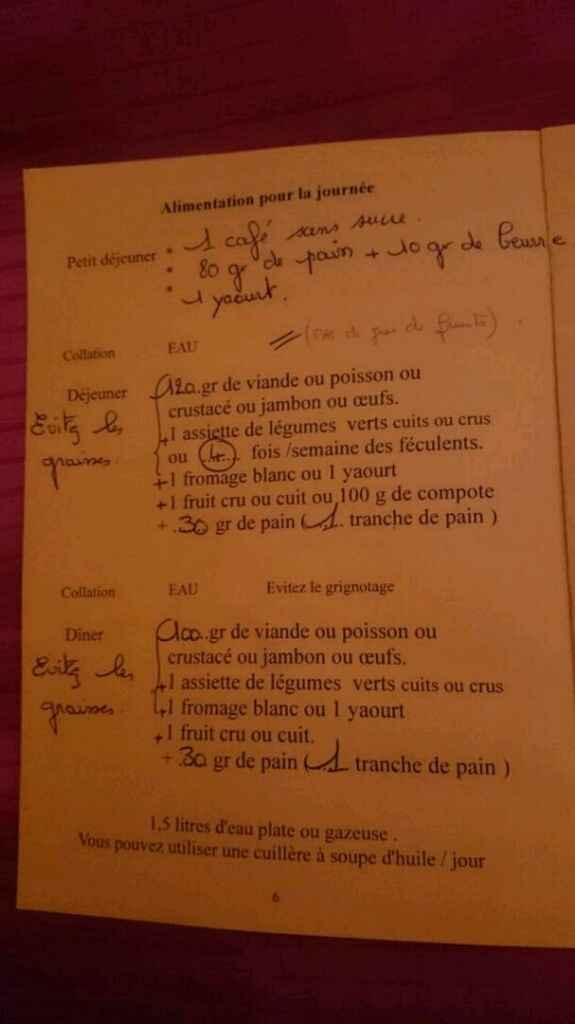 Alimentation pour la journée
Petit déjeuner • 1 café sans sucre.
• 80 gr de pain + 10 gr de beurre
• 1 yaourt.
Collation EAU = (pas de jus de fruits).
Déjeuner 120..gr de viande ou poisson ou
crustacé ou jambon ou œufs.
Evitez les +1 assiette de légumes verts cuits ou crus
graisses. ou 4. fois /semaine des féculents.
+1 fromage blanc ou 1 yaourt
+1 fruit cru ou cuit ou 100 g de compote
+ .30 gr de pain ( .1. tranche de pain )
Collation EAU Evitez le grignotage
Diner 100..gr de viande ou poisson ou
crustacé ou jambon ou œufs.
Evitez les +1 assiette de légumes verts cuits ou crus
graisses. +1 fromage blanc ou 1 yaourt
+1 fruit cru ou cuit.
+ .30 gr de pain ( .1 tranche de pain )
1,5 litres d'eau plate ou gazeuse .
Vous pouvez utiliser une cuillère à soupe d'huile / jour
6